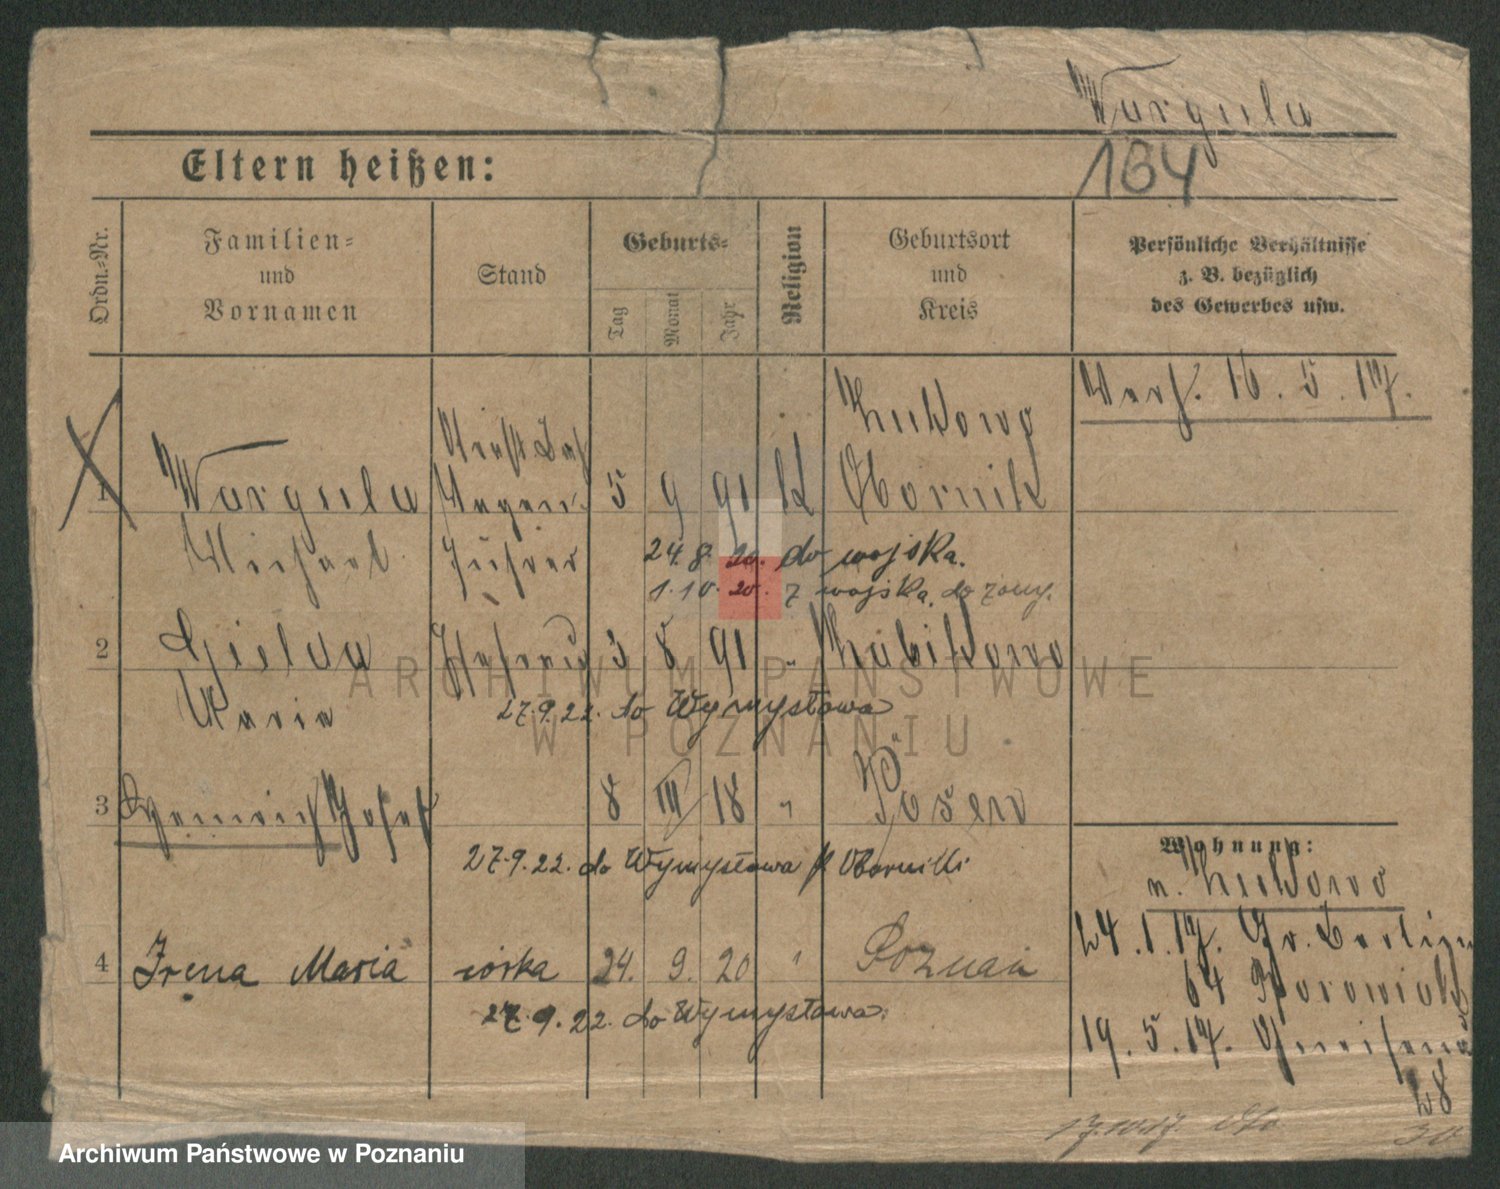 Wargula
164
Eltern heißen:
Ordn.-Nr.
Familien-
und
Vornamen
Stand
Geburts-
Tag
Monat
Jahr
Religion
Geburtsort
und
Kreis
Persönliche Verhältnisse
z. B. bezüglich
des Gewerbes usw.
Verh. 16. 5. 17.
1
Wargula
Michael
Wagen
führer
5 9 91 k
Obornik
24.8.20. do wojska.
1.10.20. z wojska, do żony.
2
Gielda
Maria
Ehefrau
3 8 91 "
Żabikowo
27.9.22. do Wymysłowa
3
Heinrich Josef
8 III 18 "
Posen
27.9.22. do Wymysłowa p. Oborniki
Wohnung:
4
Irena Maria
córka
24. 9. 20 "
Poznań
27.9.22. do Wymysłowa
24.1.17. Gr. Berliner
64
19.5.17. Gneisenau
28
30
ARCHIWUM PAŃSTWOWE
W POZNANIU
Archiwum Państwowe w Poznaniu